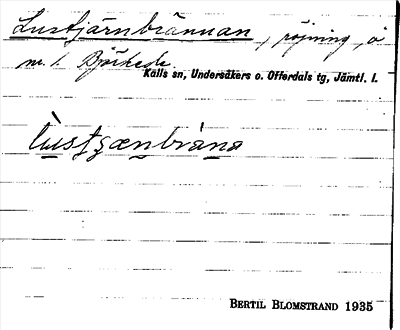 Lustjärnbrännan, röjning, å
m. t. Björkede.
Kalls sn, Undersåkers o. Offerdals tg, Jämtl. l.
BERTIL BLOMSTRAND 1935